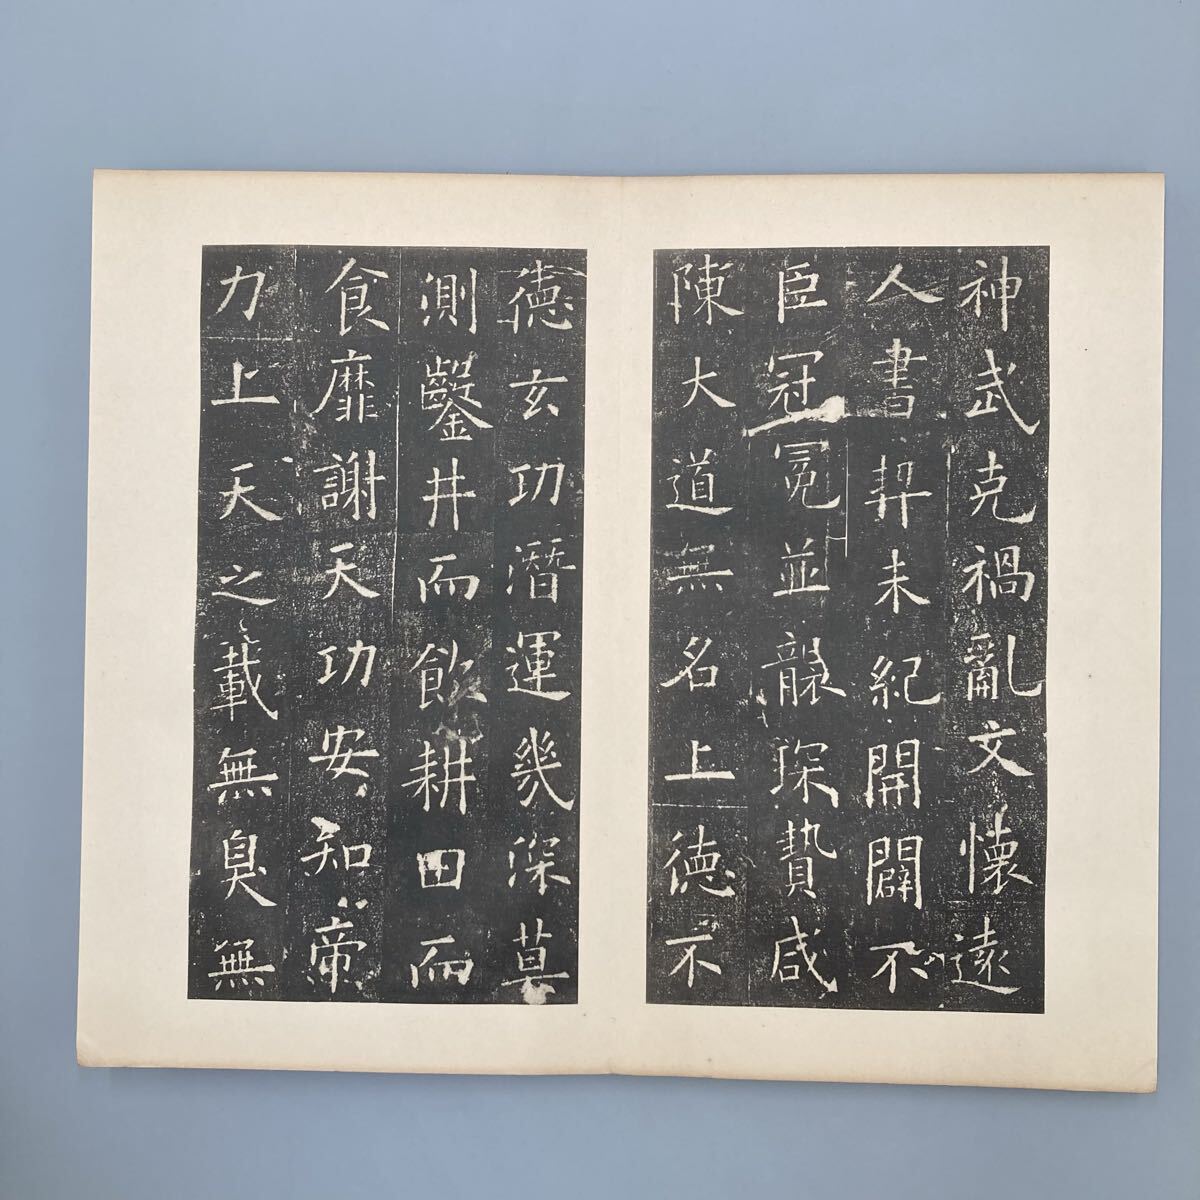 神武克禍亂文懷遠
人書契未紀開闢不
臣冠冕並襲琛贄咸
陳大道無名上德不
德玄功潛運幾深莫
測鑿井而飲耕田而
食靡謝天功安知帝
力上天之載無臭無